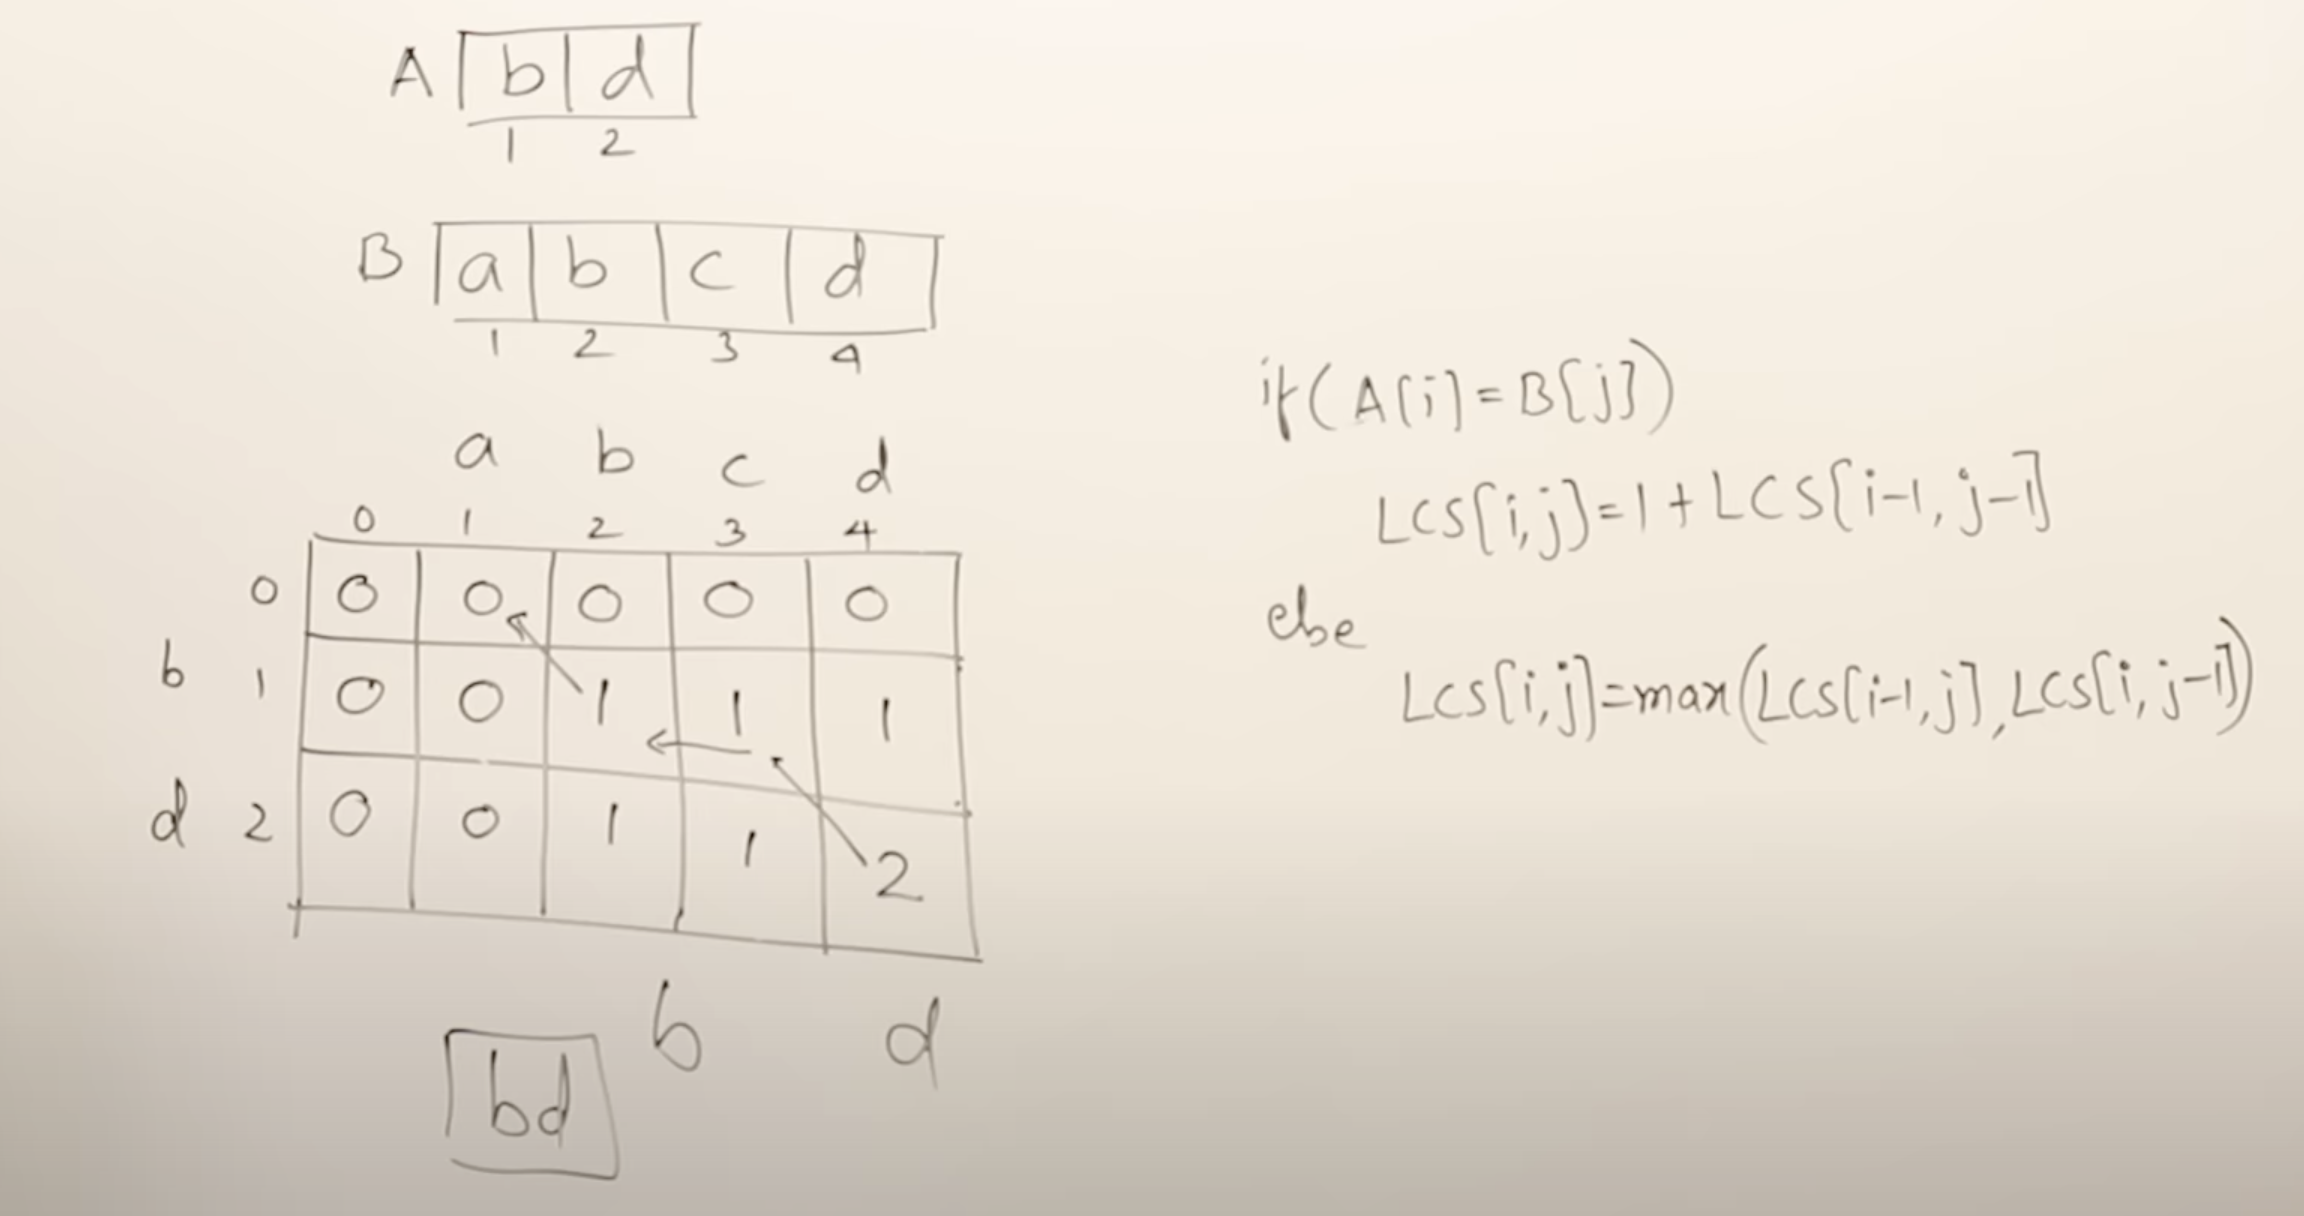 A b d
1 2
B a b c d
1 2 3 4
a b c d
0 1 2 3 4
0 0 0 0 0 0
b 1 0 0 1 1 1
d 2 0 0 1 1 2
b d
bd
if(A[i]=B[j])
LCS[i,j]=1+LCS[i-1,j-1]
else
LCS[i,j]=max(LCS[i-1,j],LCS[i,j-1])